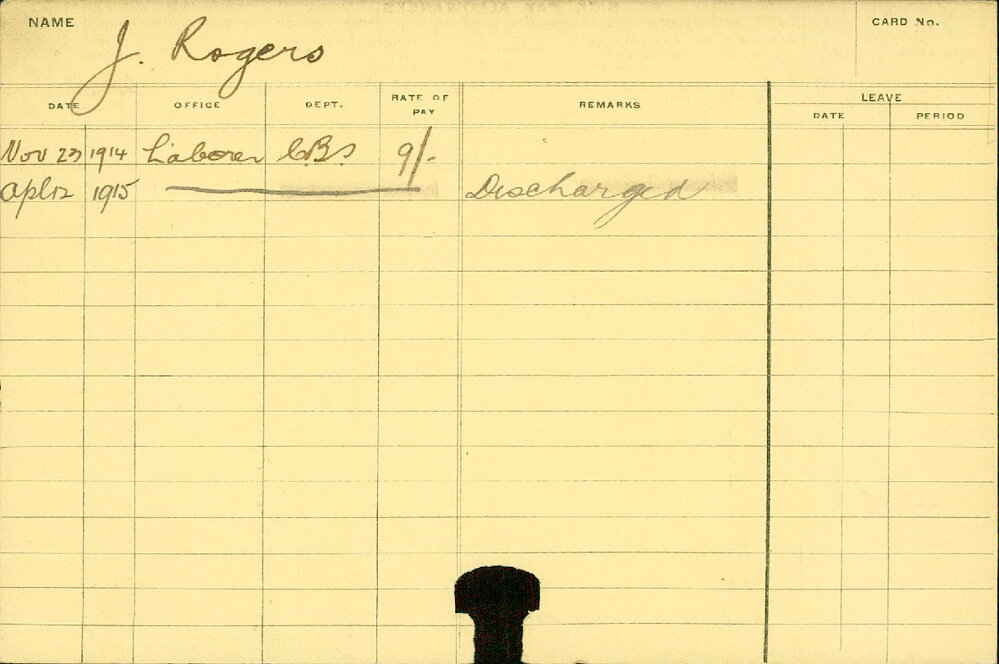 NAME J. Rogers CARD No.
DATE OFFICE DEPT. RATE OF PAY REMARKS LEAVE
DATE PERIOD
Nov 23 1914 Laborer C.B.S 9/-
Apl 12 1915 Discharged